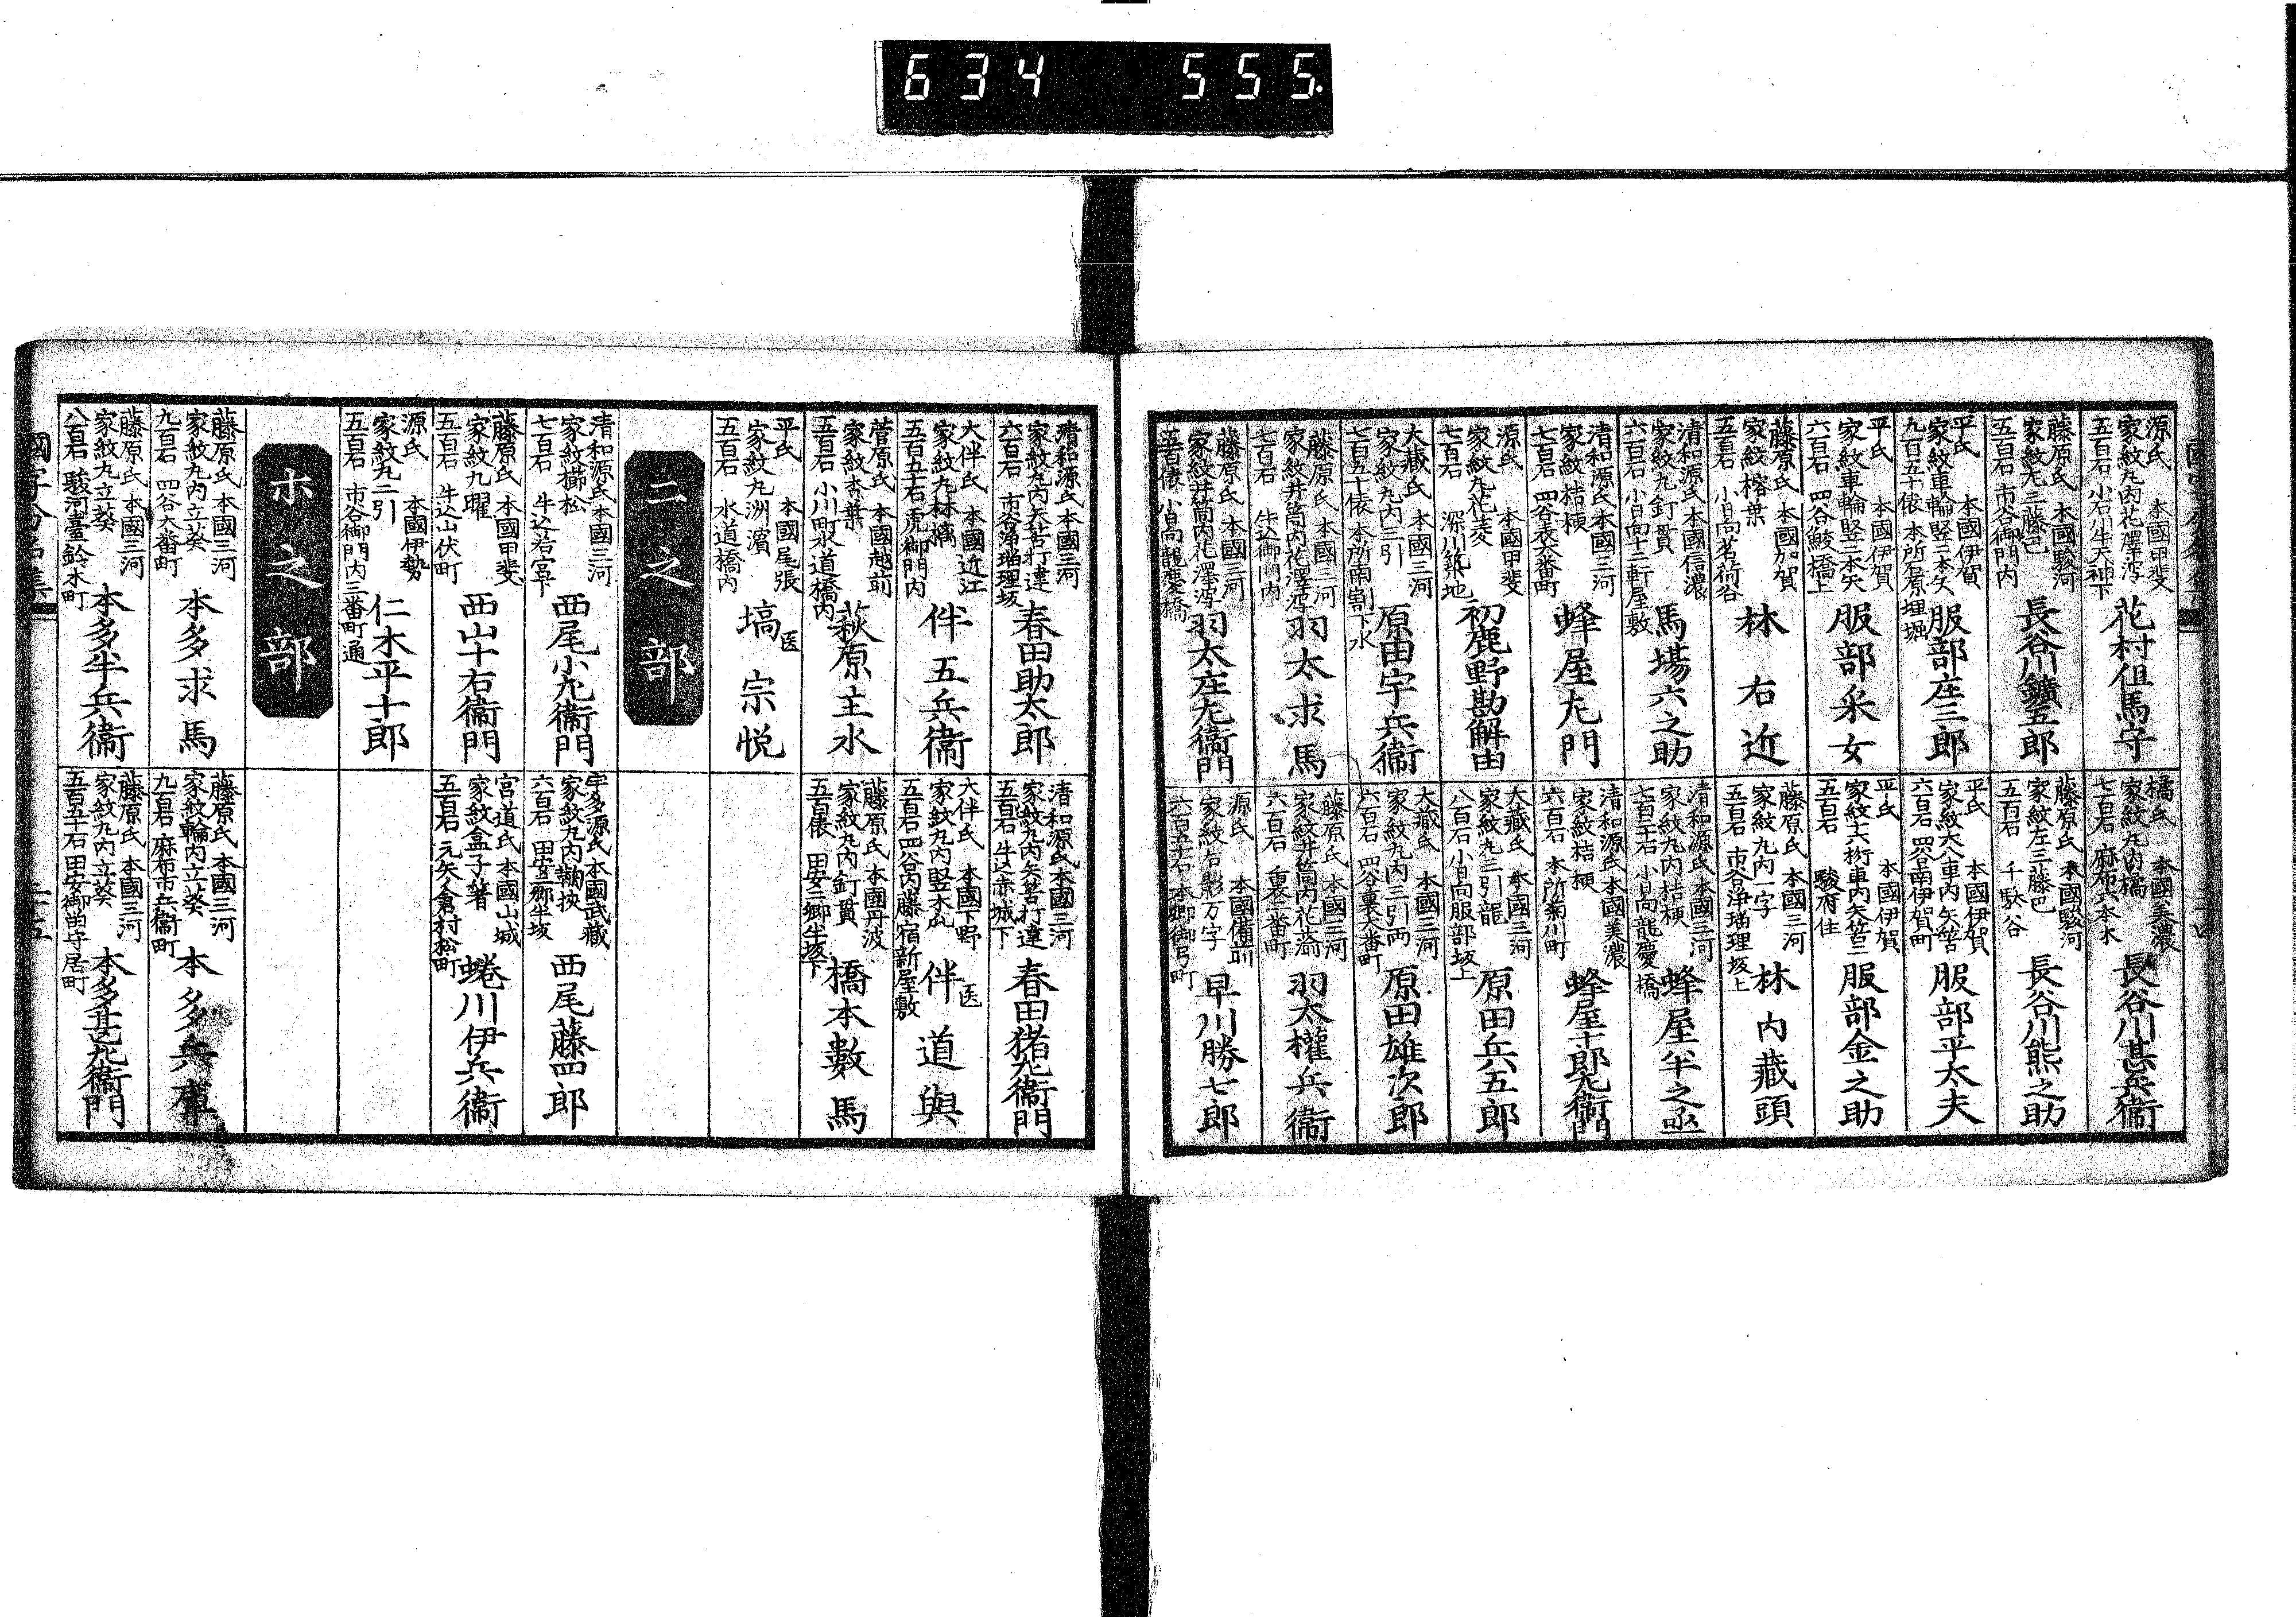 634 555.
源氏 本國甲斐
家紋丸内花澤瀉
五百石 小石川牛天神下
花村但馬守
藤原氏 本國駿河
家紋左三藤巴
五百石 市谷御門内
長谷川鑛五郎
平氏 本國伊賀
家紋車輪竪二本矢
九百五十俵 本所石原埋堀
服部庄三郎
平氏 本國伊賀
家紋車輪竪二本矢
六百石 四谷鮫橋上
服部采女
藤原氏 本國加賀
家紋榕葉
五百石 小日向茗荷谷
林右近
清和源氏 本國信濃
家紋丸釘貫
六百石 小日向十二軒屋敷
馬場六之助
清和源氏 本國三河
家紋桔梗
七百石 四谷表大番町
蜂屋左門
源氏 本國甲斐
家紋丸花菱
七百石 深川築地
初鹿野勘解由
大藏氏 本國三河
家紋丸内三引
七百五十俵 本所南割下水
原田宇兵衞
藤原氏 本國三河
家紋井筒内花澤瀉
七百石 牛込御門内
羽太求馬
藤原氏 本國三河
家紋井筒内花澤瀉
五百俵 小日向龍慶橋
羽太庄左衞門
橘氏 本國美濃
家紋丸内橘
七百石 麻布六本木
長谷川甚兵衞
藤原氏 本國駿河
家紋左三藤巴
五百石 千駄谷
長谷川熊之助
平氏 本國伊賀
家紋大八車内矢筈
六百石 四谷南伊賀町
服部平太夫
平氏 本國伊賀
家紋十六桁車内矢筈二
五百石 駿府住
服部金之助
藤原氏 本國三河
家紋丸内一字
五百石 市谷浄瑠理坂上
林内藏頭
清和源氏 本國三河
家紋丸内桔梗
七百二十石 小日向龍慶橋
蜂屋半之丞
清和源氏 本國美濃
家紋桔梗
六百石 本所菊川町
蜂屋十郎左衞門
大藏氏 本國三河
家紋丸三引龍
八百石 小日向服部坂上
原田兵五郎
大藏氏 本國三河
家紋丸内三引両
六百石 四谷裏大番町
原田雄次郎
藤原氏 本國三河
家紋井筒内花澤瀉
六百石 裏二番町
羽太權兵衞
源氏 本國備前
家紋右影万字
六百五十石 本郷御弓町
早川勝七郎
清和源氏 本國三河
家紋丸内矢筈打違
六百石 市谷浄瑠理坂
春田助太郎
大伴氏 本國近江
家紋丸林橘
五百五十石 虎御門内
伴五兵衞
菅原氏 本國越前
家紋本葉
五百石 小川町水道橋内
萩原主水
平氏 本國尾張
家紋丸洲濱
五百石 水道橋内
医
塙宗悦
清和源氏 本國三河
家紋丸内矢筈打違
五百石 牛込赤城下
春田猪左衞門
大伴氏 本國下野
家紋丸内竪木瓜
五百石 四谷内藤宿新屋敷
医
伴道與
藤原氏 本國丹波
家紋丸内釘貫
五百俵 田安三郷半坂下
橋本數馬
ニ之部
清和源氏 本國三河
家紋櫛松
七百石 牛込若宮下
西尾小左衞門
藤原氏 本國甲斐
家紋九曜
五百石 牛込山伏町
西山十右衞門
源氏 本國伊勢
家紋丸二引
五百石 市谷御門内三番町通
仁木平十郎
宇多源氏 本國武藏
家紋丸内鞠挾
六百石
西尾藤四郎
宮道氏 本國山城
家紋盒子箸
五百石 元矢倉村松町
蜷川伊兵衞
ホ之部
藤原氏 本國三河
家紋丸内立葵
九百石 四谷大番町
本多求馬
藤原氏 本國三河
家紋丸立葵
八百石 駿河臺鈴木町
本多半兵衞
藤原氏 本國三河
家紋輪内立葵
九百石 麻布市兵衞町
本多兵庫
藤原氏 本國三河
家紋丸内立葵
五百五十石 田安御留守居町
本多甚五左衞門
國字分名集
二十五